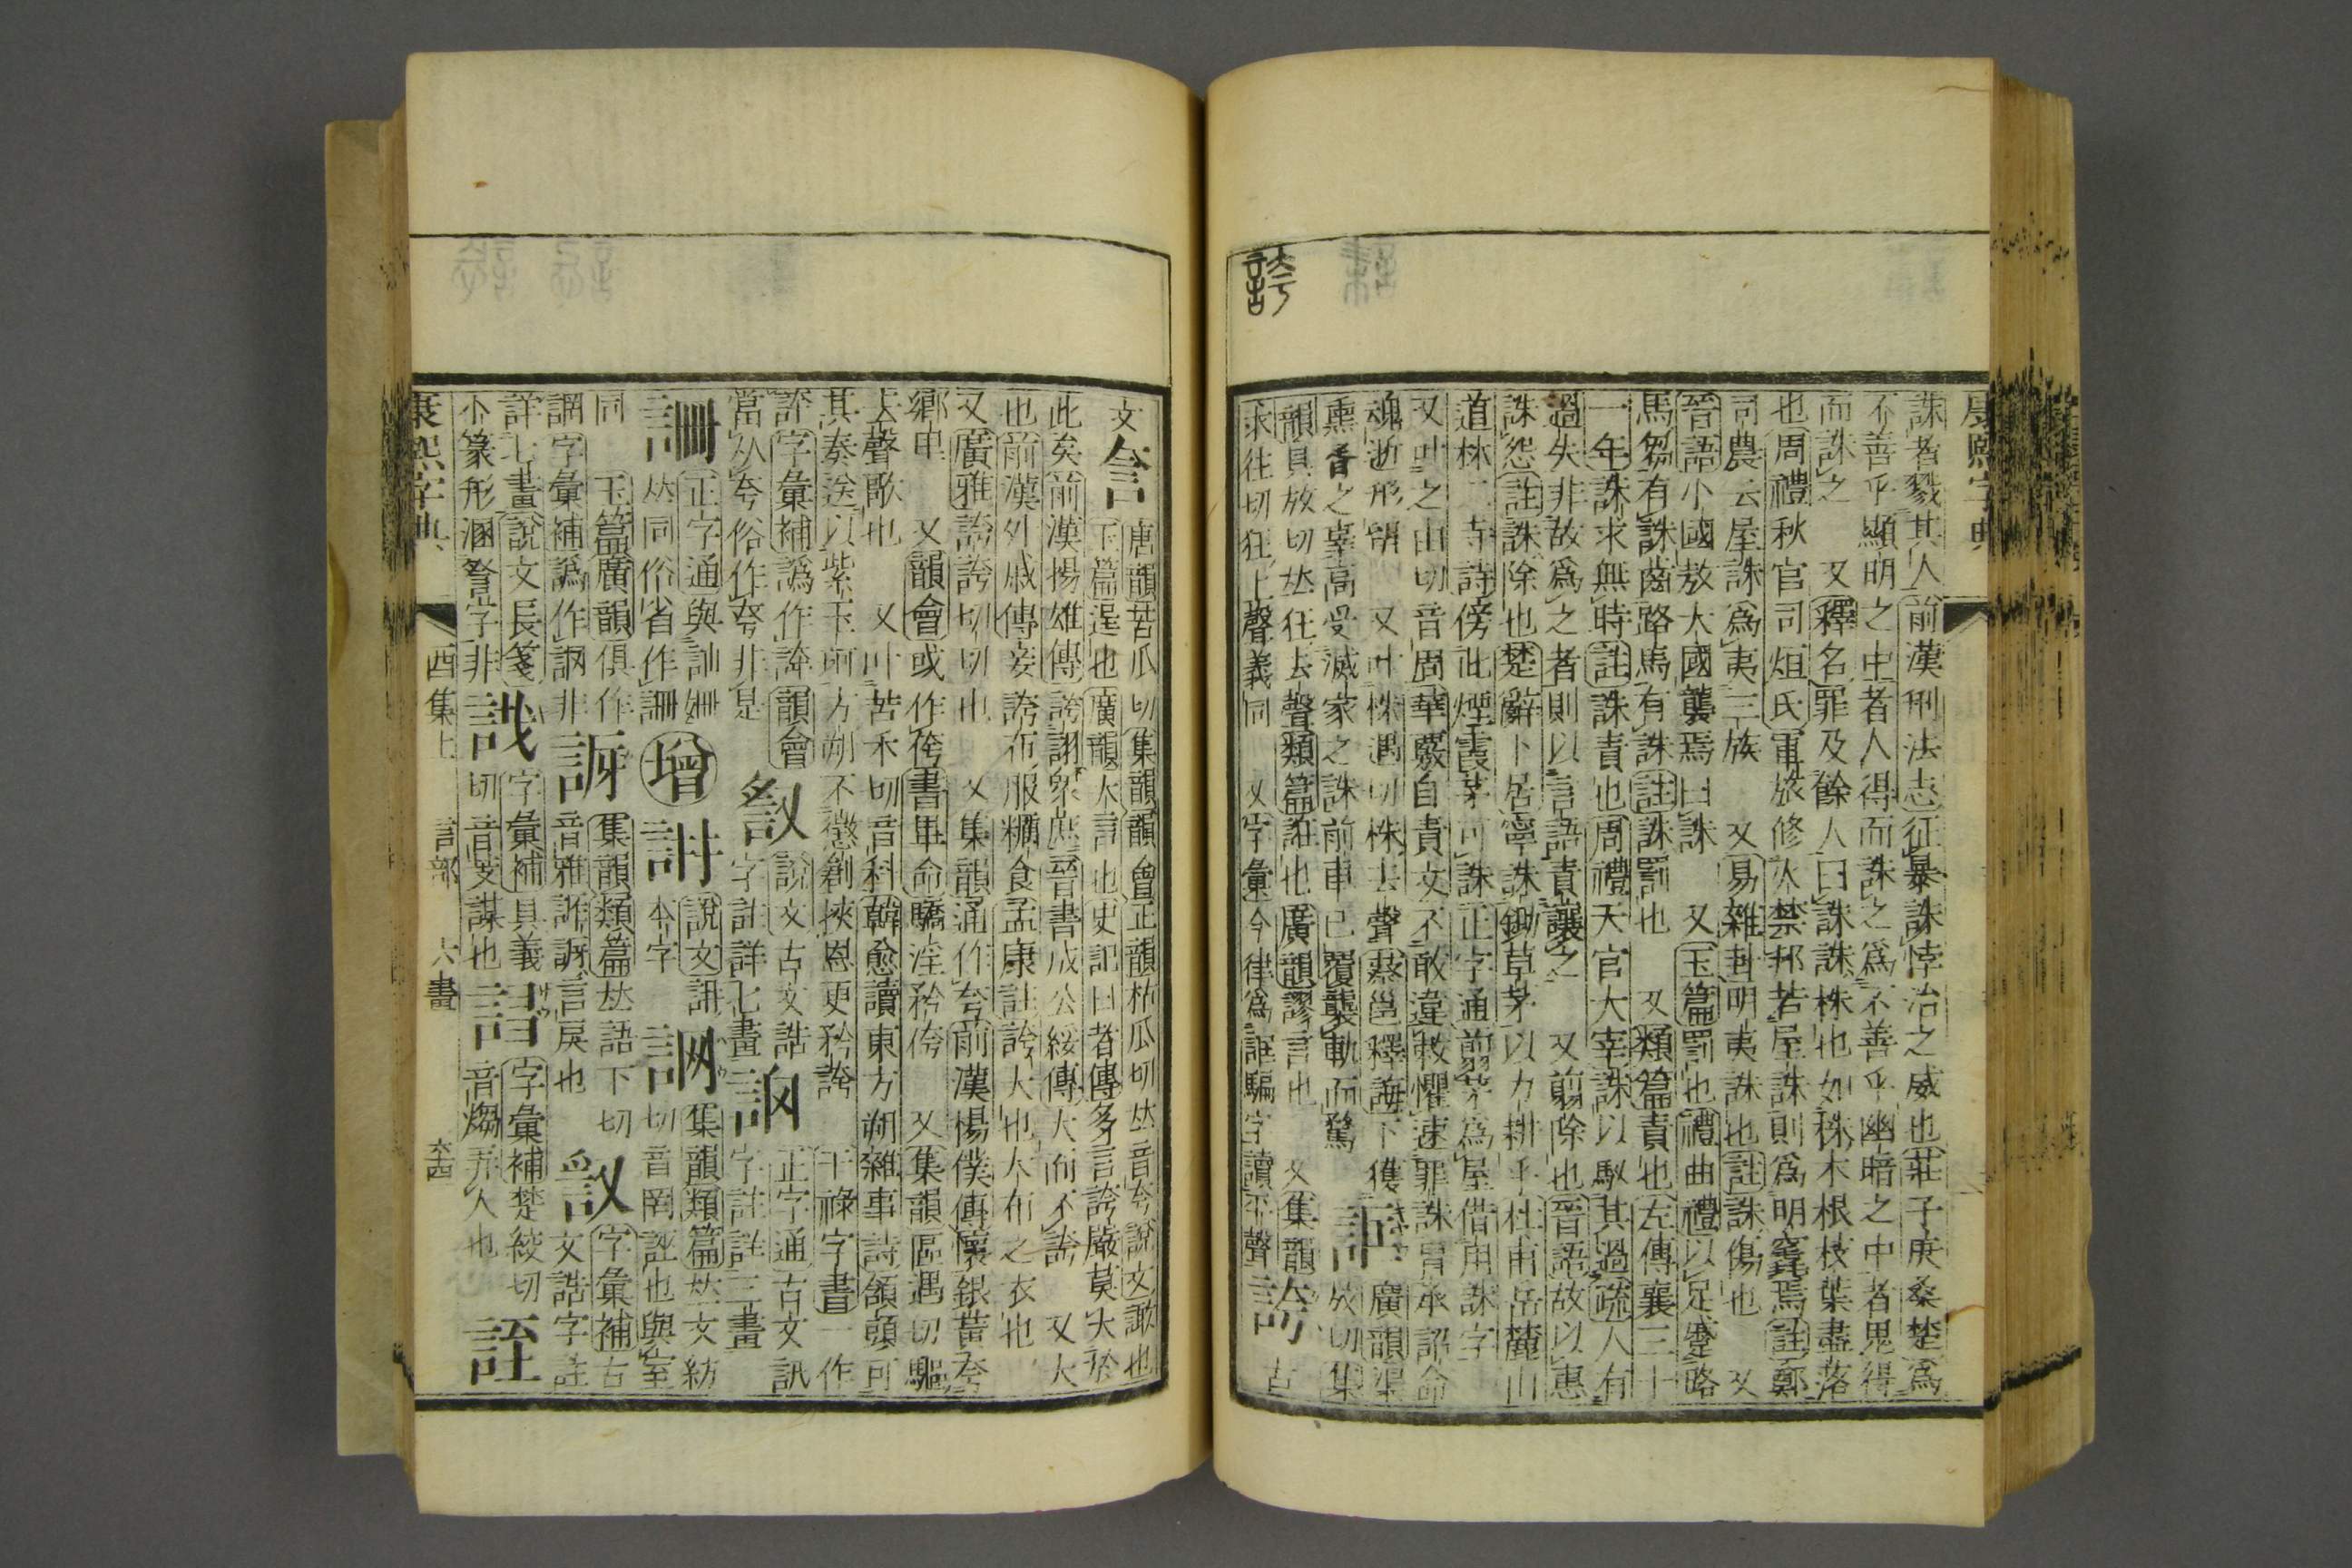 康熙字典
誅者戮其人前漢刑法志征暴誅悖治之威也莊子庚桑楚爲
不善乎顯明之中者人得而誅之爲不善乎幽暗之中者鬼得
而誅之 又釋名罪及餘人曰誅誅株也如株木根枝葉盡落
也周禮秋官司烜氏軍旅修火禁邦若屋誅則爲明竁焉註鄭
司農云屋誅爲夷三族 又易雜卦明夷誅也註誅傷也 又
晉語小國敖大國襲焉曰誅 又玉篇罰也禮曲禮以足蹙路
馬芻有誅齒路馬有誅註誅罰也 又類篇責也左傳襄三十
一年誅求無時註誅責也周禮天官大宰誅以馭其過疏人有
過失非故爲之者則以言語責讓之 又翦除也晉語故以惠
誅怨註誅除也楚辭卜居寧誅鋤草茅以力耕乎杜甫岳麓山
道林二寺詩傍此煙霞茅可誅正字通翦茅爲屋借用誅字
又叶之由切音周華覈自責文不敢違敕懼速罪誅冒承詔命
魂逝形留 又叶株遇切株去聲蔡邕釋誨下獲
熏胥之辜高受滅家之誅前車已覆襲軌而騖
誆
廣韻渠放切集
韻具放切𠀤狂去聲類篇誑也廣韻謬言也 又集韻
求往切狂上聲義同 又字彙今律爲誆騙字讀平聲
誇
古
文
𧧻
唐韻苦瓜切集韻韻會正韻枯瓜切𠀤音夸說文譀也
玉篇逞也廣韻大言也史記日者傳多言誇嚴莫大於
此矣前漢揚雄傳誇詡衆庶晉書成公綏傳大而不誇 又大
也前漢外戚傳妾誇布服糲食孟康註誇大也大布之衣也
又廣雅誇誇切切也 又集韻通作夸前漢楊僕傳懷銀黃夸
鄉里 又韻會或作侉書畢命驕淫矜侉 又集韻區遇切驅
去聲歌也 又叶苦禾切音科韓愈讀東方朔雜事詩頷頭可
其奏送以紫玉珂方朔不懲創挾恩更矜誇 干祿字書一作
䛻字彙補譌作誶韻會
當从夸俗作夸非是
說文古文誥
字註詳七畫
正字通古文訊
字註詳三畫
正字通與訕姍
𠀤同俗省作
增
說文訊
今字
集韻類篇𠀤文紡
切音罔誣也與
同
玉篇廣韻俱作
字彙補譌作非
訝
集韻類篇𠀤語下切
音雅訝言戾也
字彙補古
文誥字註
詳七畫說文長箋
小篆形溷字非
字彙補具義
切音支謀也
字彙補楚絞切
音煼弄人也
康熙字典
酉集上
言部
六畫
誇